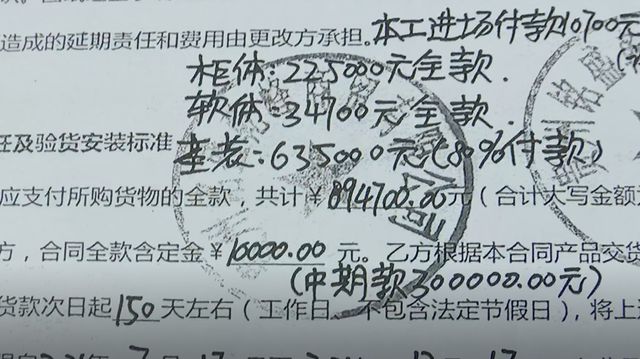 造成的延期责任和费用由更改方承担。木工进场付款10700元
柜体:225000元全款.
软体:34700元全款.
任及验货安装标准
基装:635000元(80%付款)
应支付所购货物的全款,共计¥894700.00元(合计大写金额
方,合同全款含定金¥10000.00元。乙方根据本合同产品交货
(中期款300000.00元)
货款次日起150天左右(工作日,不包含法定节假日),将上